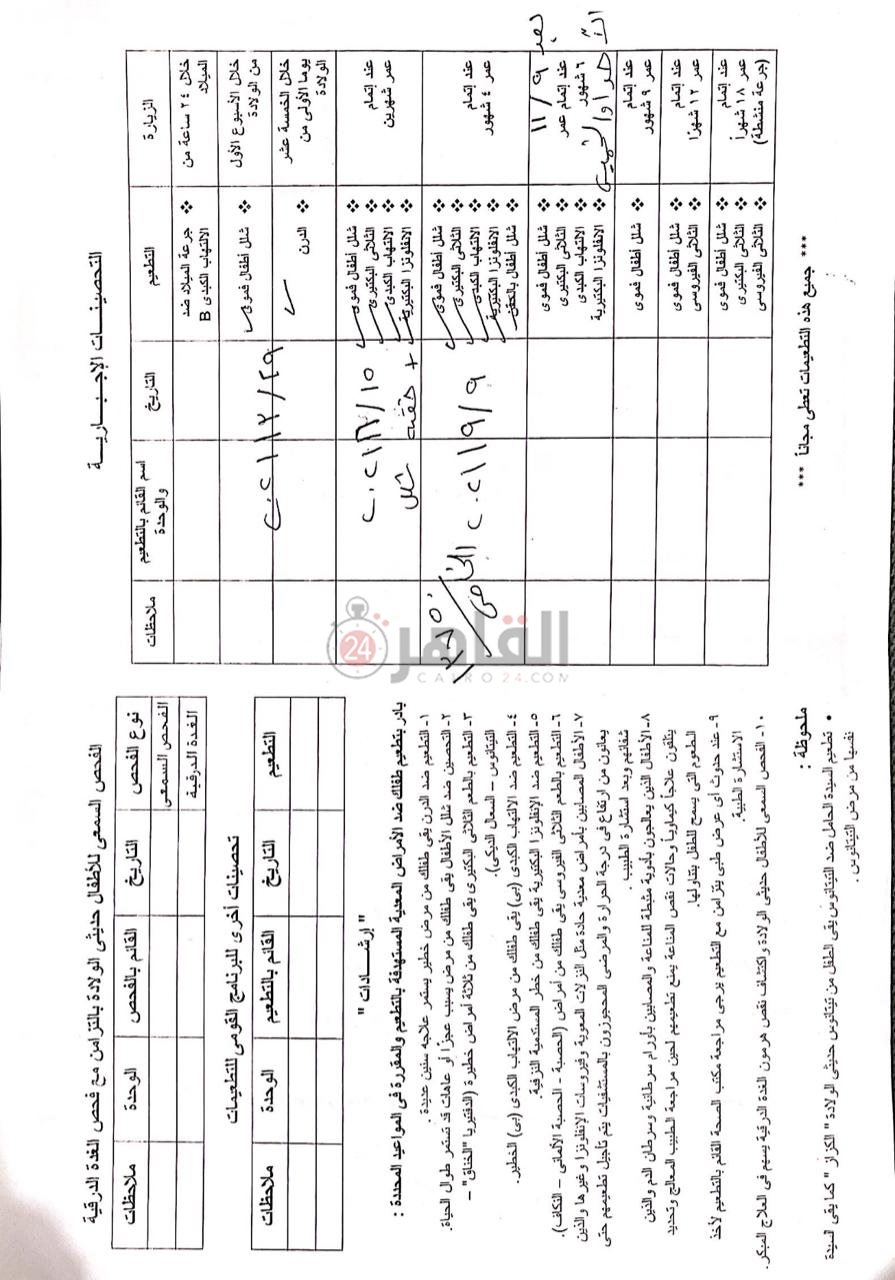 التحصينات الإجبارية
الزيارة	التطعيم	التاريخ	اسم القائم بالتطعيم والوحدة	ملاحظات
خلال ٢٤ ساعة من الميلاد
❖ جرعة الميلاد ضد الالتهاب الكبدى B
خلال الأسبوع الأول من الولادة
❖ شلل أطفال فموى
خلال الخمسة عشر يوما الأولى من الولادة
❖ الدرن
٢٠٢١/١٢/٢٩
عند إتمام عمر شهرين
❖ شلل أطفال فموى
❖ الثلاثى البكتيرى
❖ الالتهاب الكبدى
❖ الانفلونزا البكتيرية
+ حقنه شلل
عند إتمام عمر ٤ شهور
❖ شلل أطفال فموى
❖ الثلاثى البكتيرى
❖ الالتهاب الكبدى
❖ الانفلونزا البكتيرية
❖ شلل أطفال بالحقن
٢٠٢١/٩/٩
عند إتمام عمر ٦ شهور
❖ شلل أطفال فموى
❖ الثلاثى البكتيرى
❖ الالتهاب الكبدى
❖ الانفلونزا البكتيرية
بعد ١١/٩
عند إتمام عمر ٩ شهور
❖ شلل أطفال فموى
عند إتمام عمر ١٢ شهرًا
❖ شلل أطفال فموى
❖ الثلاثى الفيروسى
عند إتمام عمر ١٨ شهراً (جرعة منشطة)
❖ شلل أطفال فموى
❖ الثلاثى البكتيرى
❖ الثلاثى الفيروسى
*** جميع هذه التطعيمات تعطى مجاناً ***
القاهرة 24
CAIRO24.COM
الفحص السمعى للأطفال حديثى الولادة بالتزامن مع فحص الغدة الدرقية
نوع الفحص	التاريخ	القائم بالفحص	الوحدة	ملاحظات
الفحص السمعى
الغدة الدرقية
تحصينات أخرى للبرنامج القومى للتطعيمات
التطعيم	التاريخ	القائم بالتطعيم	الوحدة	ملاحظات
" إرشادات "
بادر بتطعيم طفلك ضد الأمراض المعدية المستهدفة بالتطعيم والمقررة فى المواعيد المحددة :
١- التطعيم ضد الدرن يقى طفلك من مرض خطير يستمر علاجه سنين عديدة .
٢- التحصين ضد شلل الأطفال يقى طفلك من مرض يسبب عجزًا أو عاهات قد تستمر طوال الحياة.
٣- التطعيم بالطعم الثلاثى البكتيرى يقى طفلك من ثلاثة أمراض خطيرة (الدفتيريا "الخناق" –
التيتانوس – السعال الديكى).
٤- التطعيم ضد الالتهاب الكبدى (بى) يقى طفلك من مرض الالتهاب الكبدى (بى) الخطير.
٥- التطعيم ضد الإنفلونزا البكتيرية يقى طفلك من خطر المستدمية النزفية.
٦- التطعيم بالطعم الثلاثى الفيروسى يقى طفلك من أمراض (الحصبة - الحصبة الألمانى – النكاف).
٧- الأطفال المصابين بأمراض معدية حادة مثل النزلات المعوية وفيروسات الإنفلونزا وغيرها والذين
يعانون من ارتفاع فى درجة الحرارة والمرضى المحجوزون بالمستشفيات يتم تأجيل تطعيمهم حتى
شفائهم وبعد استشارة الطبيب.
٨- الأطفال الذين يعالجون بأدوية مثبطة للمناعة والمصابين بأورام سرطانية وسرطان الدم والذين
يتلقون علاجاً كيماوياً وحالات نقص المناعة يمنع تطعيمهم لحين مراجعة الطبيب المعالج وتحديد
الطعوم التى يسمح للطفل بتناولها.
٩- عند حدوث أى عرض طبى يتزامن مع التطعيم يرجى مراجعة مكتب الصحة القائم بالتطعيم لأخذ
الاستشارة الطبية.
١٠- الفحص السمعى للأطفال حديثى الولادة واكتشاف نقص هرمون الغدة الدرقية يسهم فى العلاج المبكر.
ملحوظة :
• تطعيم السيدة الحامل ضد التيتانوس يقى الطفل من تيتانوس حديثى الولادة" الكزاز " كما يقى السيدة
نفسها من مرض التيتانوس .